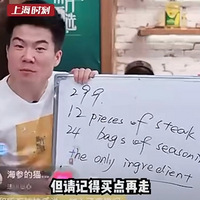 上海时刻
299.
12 pieces of steak
24 bags of seasoni
the only ingredient
海参的猫...
但请记得买点再走